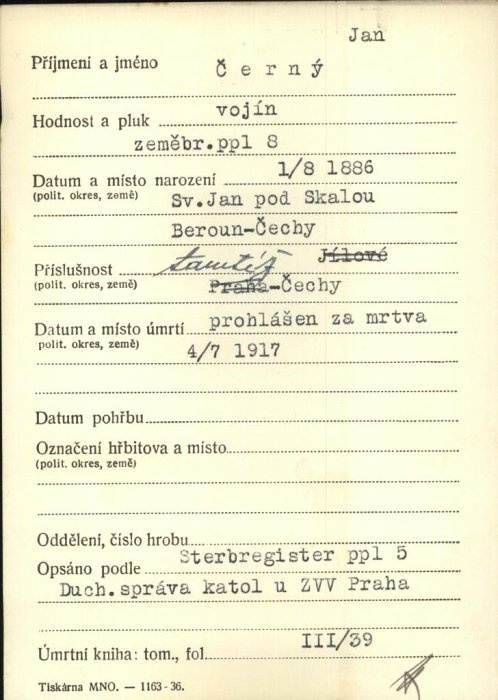 Jan
Příjmení a jméno Černý
Hodnost a pluk vojín
zeměbr.ppl 8
Datum a místo narození 1/8 1886
(polit. okres, země) Sv.Jan pod Skalou
Beroun-Čechy
Příslušnost tamtéž Jílové
(polit. okres, země) Praha-Čechy
Datum a místo úmrtí prohlášen za mrtva
polit. okres, země) 4/7 1917
Datum pohřbu
Označení hřbitova a místo
(polit. okres, země)
Oddělení, číslo hrobu
Opsáno podle Sterbregister ppl 5
Duch.správa katol u ZVV Praha
Úmrtní kniha: tom., fol. III/39
Tiskárna MNO. — 1163-36.